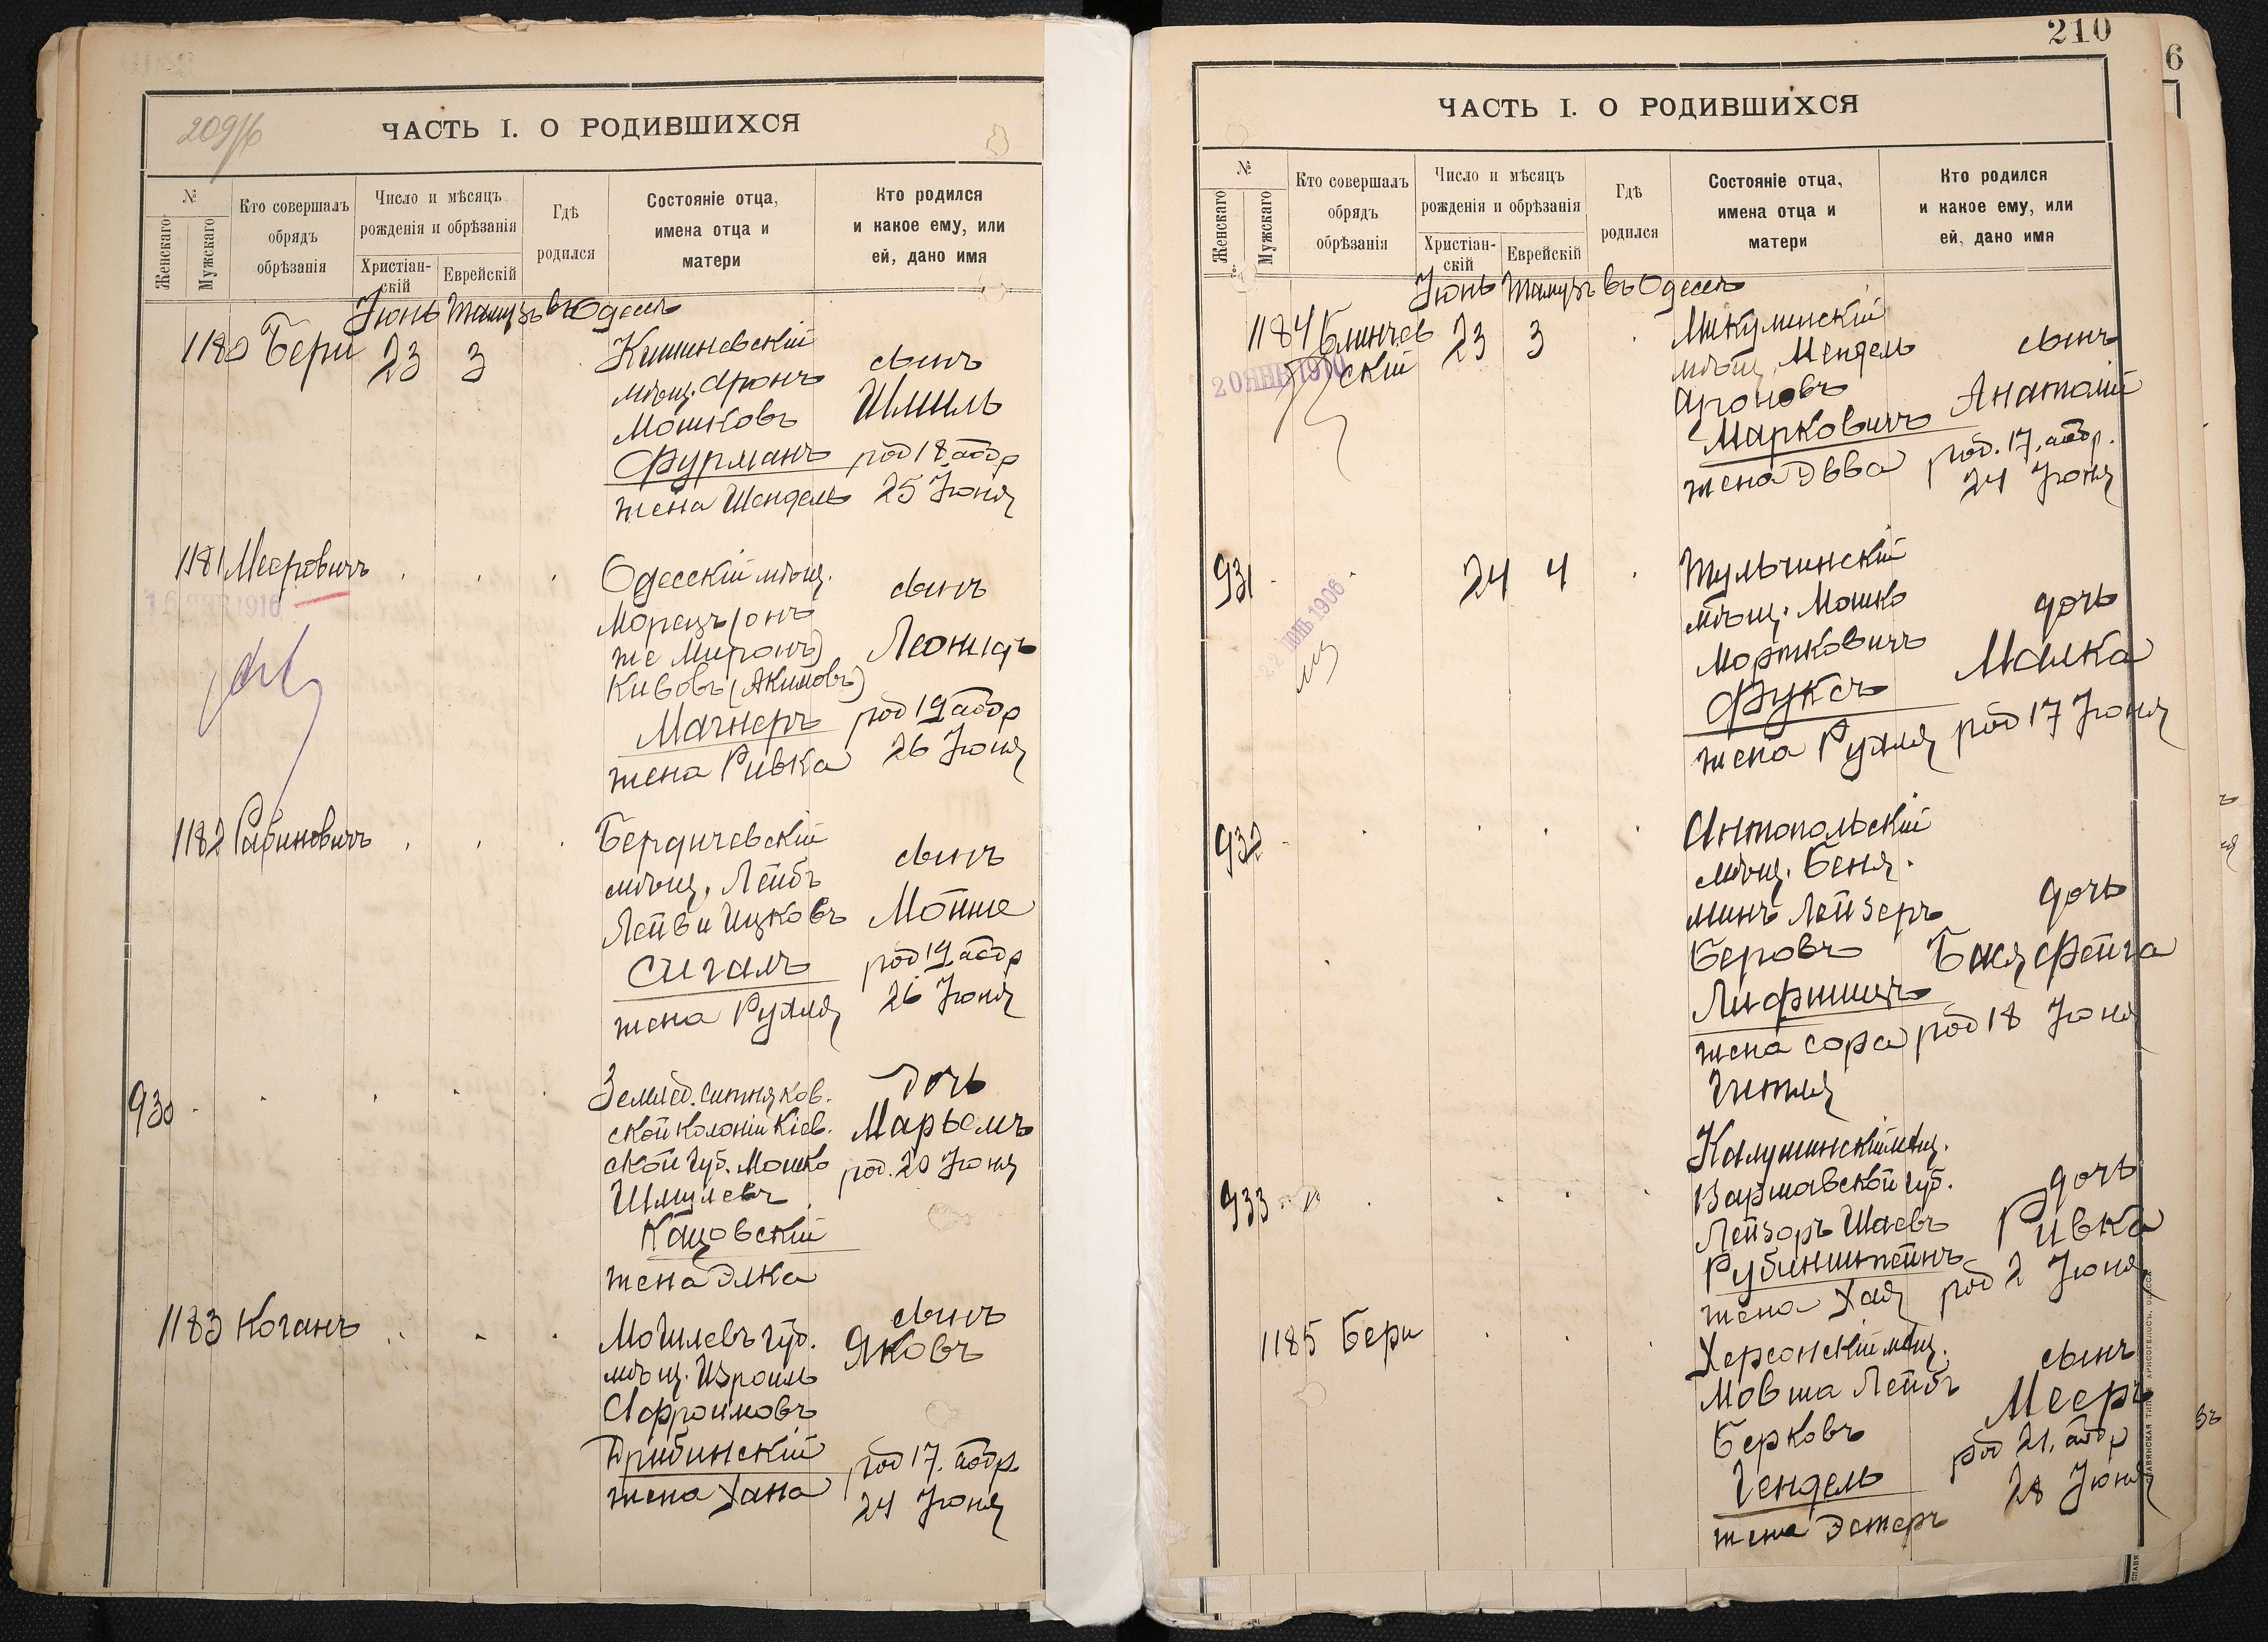 209/б
ЧАСТЬ I. О РОДИВШИХСЯ
№
Женскаго
Мужскаго
Кто совершалъ
обрядъ
обрѣзанія
Число и мѣсяцъ
рожденія и обрѣзанія
Христіан-
скій
Еврейскій
Гдѣ
родился
Состояніе отца,
имена отца и
матери
Кто родился
и какое ему, или
ей, дано имя
Іюнь Тамузъ въ Одессѣ
1180 Бери 23 3
Кишиневскій
мѣщ. Аронъ
Мошковъ
Фурманъ
жена Шендель
сынъ
Шмиль
род 18 абдр
25 Іюня
1181 Мееровичъ
1916
Одесскій мѣщ.
Морецъ (онъ
же Миронъ)
Кивовъ (Акимовъ)
Магнеръ
жена Ривка
сынъ
Леонидъ
род 19 абдр
26 Іюня
1182 Рабиновичъ
Бердичевскій
мѣщ. Лейбъ
Лейви Ицковъ
Сигалъ
жена Рухля
сынъ
Мойше
род 19 абдр
26 Іюня
930
Землед. Ситняков.
ской колоніи Кіев.
ской губ. Мошко
Шмулевъ
Кацовскій
жена Элка
дочь
Марьемъ
род. 20 Іюня
1183 Коганъ
Могилевъ губ.
мѣщ. Изроиль
Афроимовъ
Грибинскій
жена Хана
сынъ
Яковъ
род 17. абдр.
24 Іюня
210
6
ЧАСТЬ I. О РОДИВШИХСЯ
№
Женскаго
Мужскаго
Кто совершалъ
обрядъ
обрѣзанія
Число и мѣсяцъ
рожденія и обрѣзанія
Христіан-
скій
Еврейскій
Гдѣ
родился
Состояніе отца,
имена отца и
матери
Кто родился
и какое ему, или
ей, дано имя
Іюнь Тамузъ въ Одессѣ
1184 Блинчев
скій 23 3
20 ЯНВ 1910
Микулинскій
мѣщ. Мендель
Ароновъ
Марковичъ
жена Двва
сынъ
Анатолій
род. 17. абдр.
24 Іюня
931 24 4
22 ІЮНЬ 1906
Тульчинскій
мѣщ. Мошко
Мортковичъ
Фуксъ
жена Рухля
дочь
Малка
род 17 Іюня
932
Антопольскій
мѣщ. Беня.
минъ Лейзеръ
Беровъ
Лифшицъ
жена Сора
Гитля
дочь
Бася Фейга
род 18 Іюня
933
Калушинскій мѣщ.
Варшавской губ.
Лейзоръ Шаевъ
Рубинштейнъ
жена Хая
дочь
Ривка
род 2 Іюня
1185 Бери
Херсонскій мѣщ.
Мовша Лейбъ
Берковъ
Гендель
жена Эстеръ
сынъ
Мееръ
род 21. абдр
28 Іюня
СЛАВЯНСКАЯ ТИП. Н. ХРИСОГЕЛОСЪ, ОДЕССА